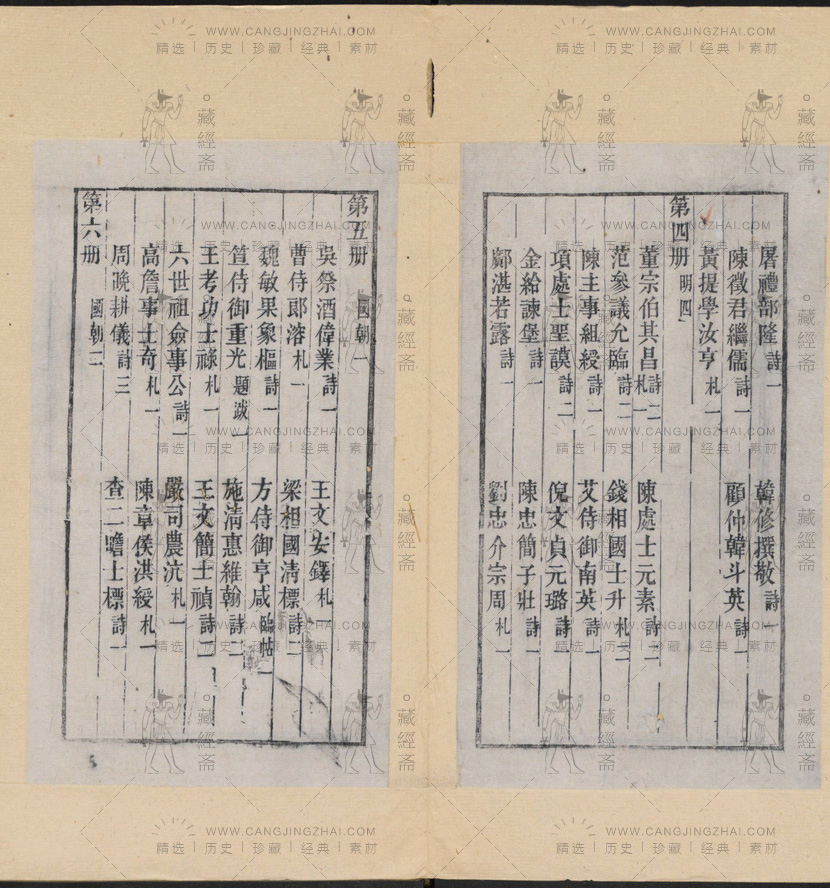 屠禮部隆詩一 韓修撰敬詩一
陳徵君繼儒詩一 顧仲韓斗英詩一
黃提學汝亨札一
第四册 明四
董宗伯其昌詩二札一 陳處士元素詩二
范參議允臨詩二 錢相國士升札二
陳主事組綬詩一 艾侍御南英詩一
項處士聖謨詩二 倪文貞元璐詩一
金給諫堡詩一 陳忠簡子壯詩一
鄺湛若露詩一 劉忠介宗周札一
第五册 國朝一
吳祭酒偉業詩一 王文安鐸札一
曹侍郎溶札一 梁相國清標詩二
魏敏果象樞詩一 方侍御亨咸臨帖一
笪侍御重光題識一 施清惠維翰詩一
王考功士祿札一 王文簡士禎詩二
六世祖僉事公詩一 嚴司農沆札一
高詹事士奇札一 陳章侯洪綬札一
周晚耕儀詩三 查二瞻士標詩一
第六册 國朝二
WWW.CANGJINGZHAI.COM
精选 | 历史 | 珍藏 | 经典 | 素材
藏經斋